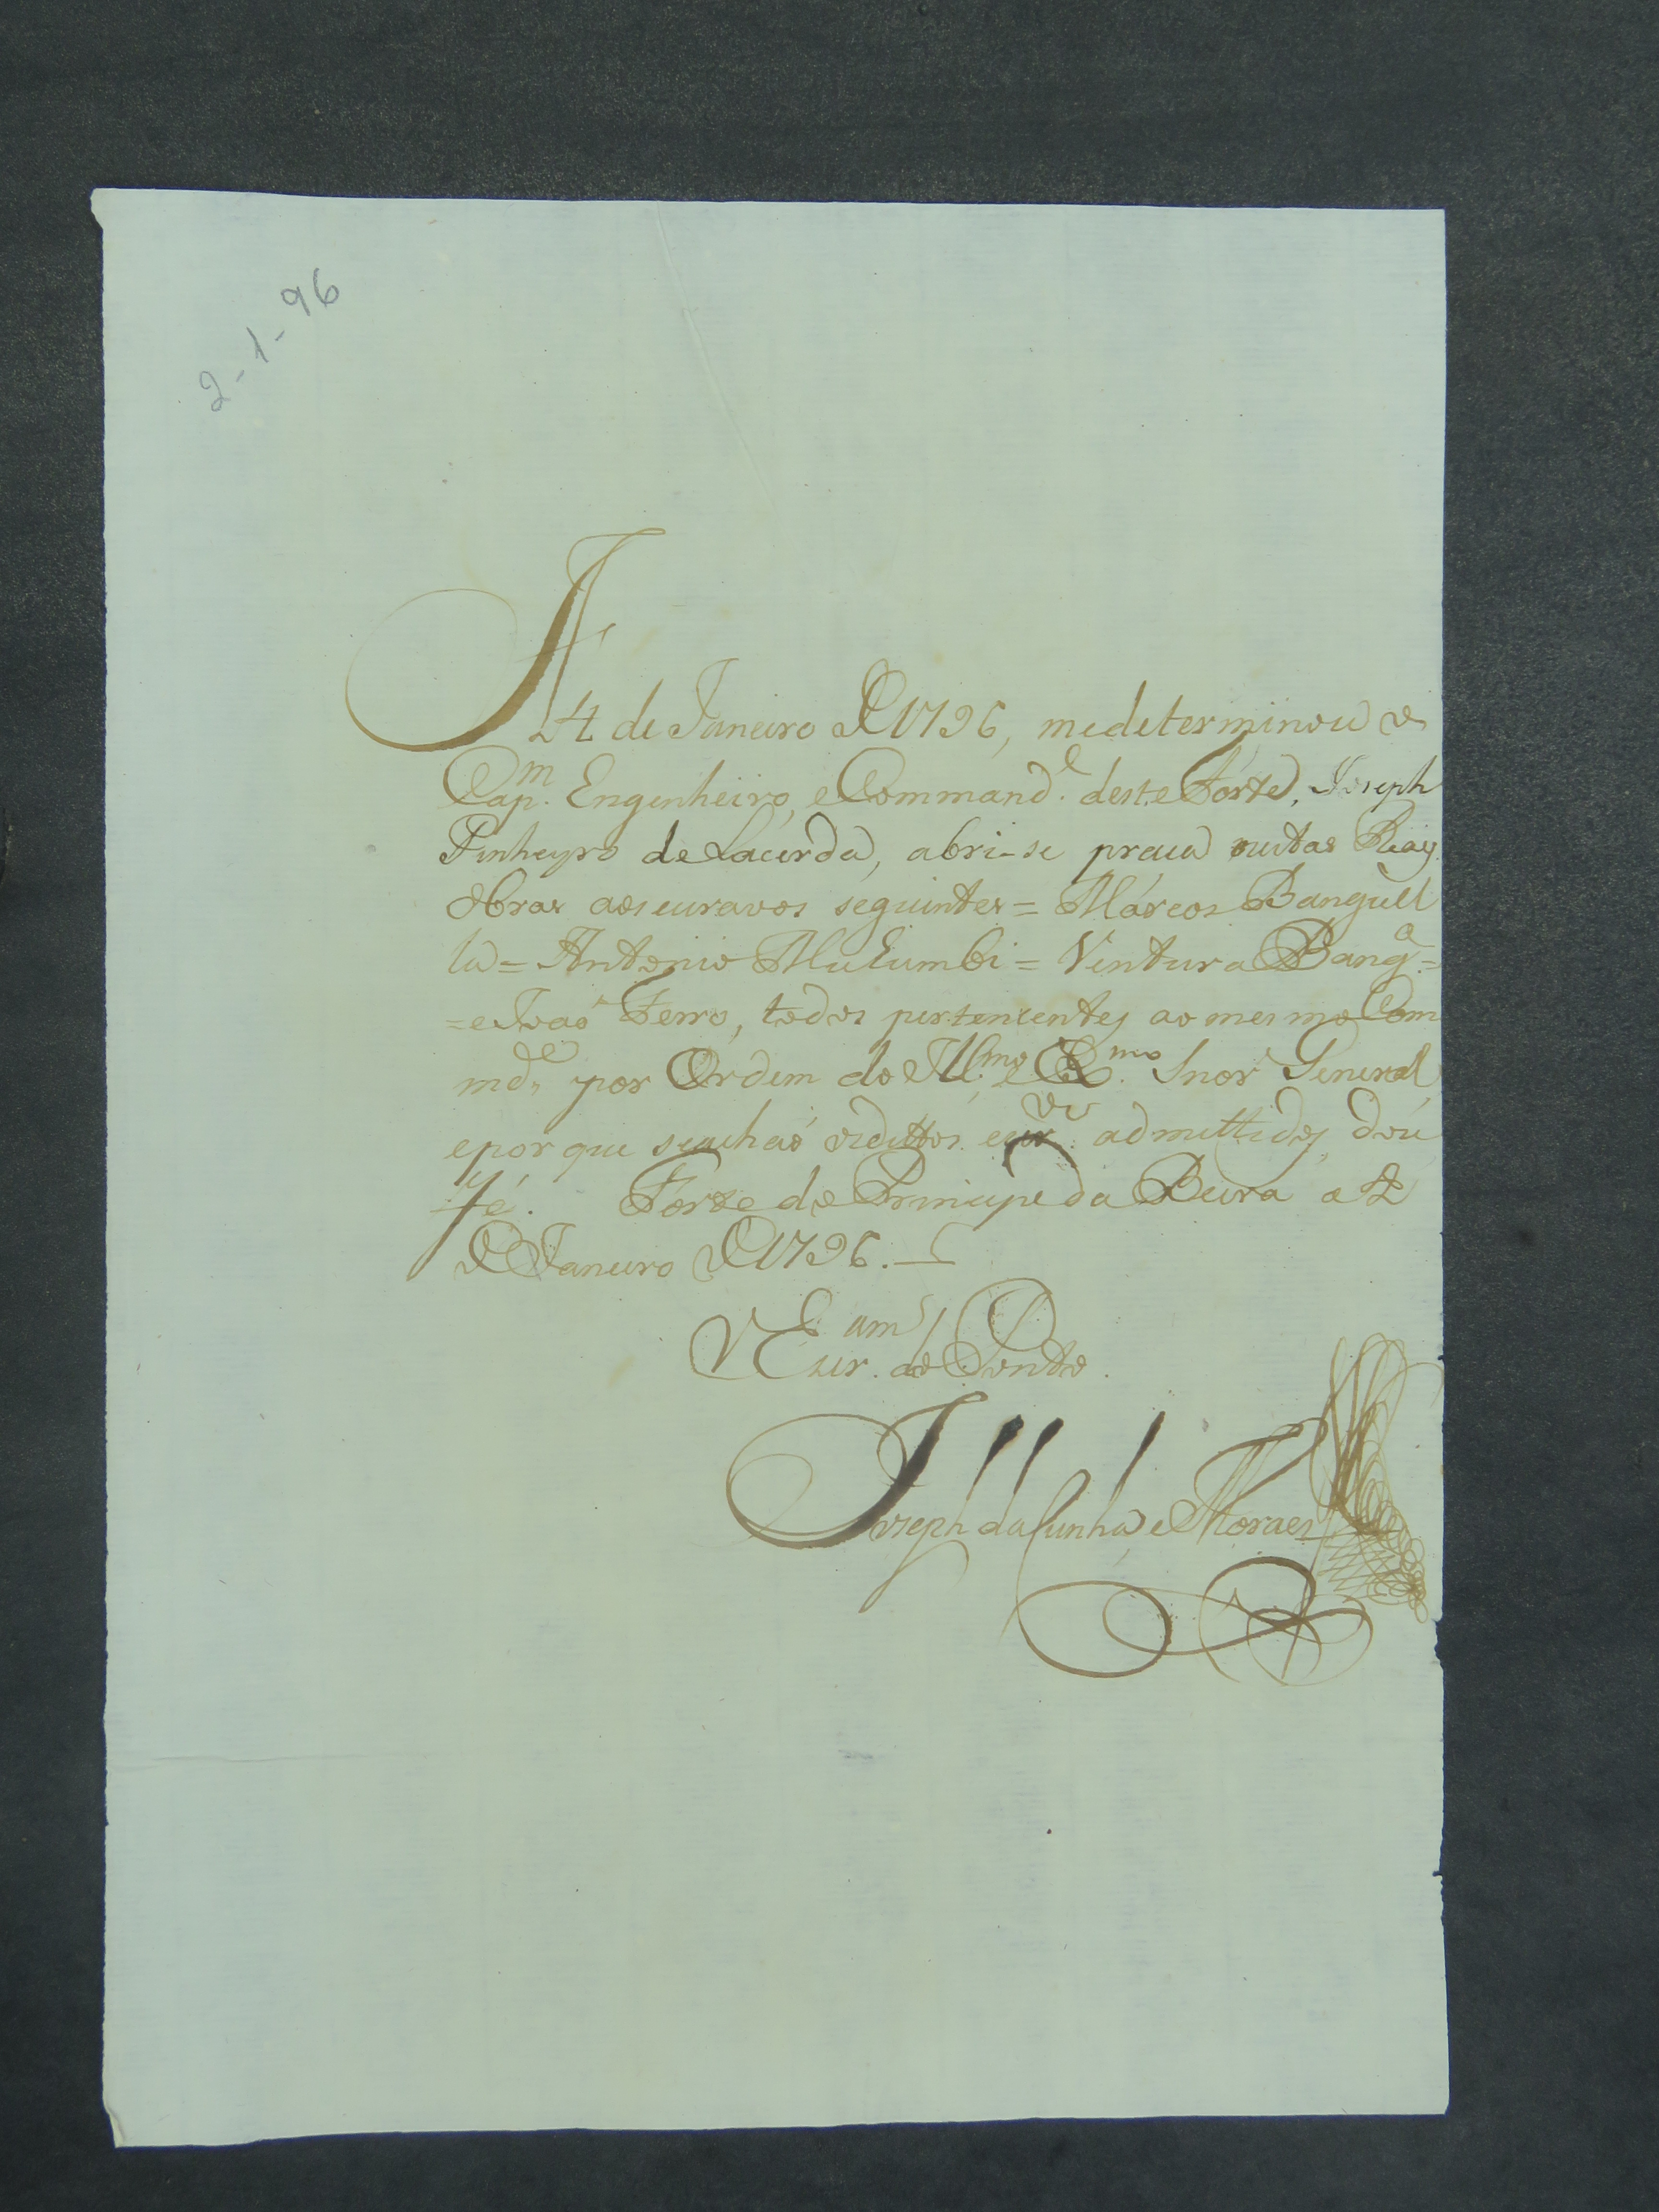 2-1-96
A 4 de Janeiro de 1796, me determinou o
Cap.m Engenheiro, e Command.e deste Forte, Joseph
Pinheyro de Lacerda, abri-se praça nestas Reays
Obras aos escravos seguintes = Márcos Banguéll
la = Antonio Mukumbi = Ventura Bang.a =
= e Joaõ Ferro, todos pertencentes ao mesmo Com
md.e por Ordem do Ill.mo e Ex.mo Snor General,
e por que se achaõ os dittos escr.vos admittidos, dou
fé. Forte do Principe da Beira a 2
de Janeiro de 1796.
Escr. do Ponto.
Joseph da Cunha e Moraes